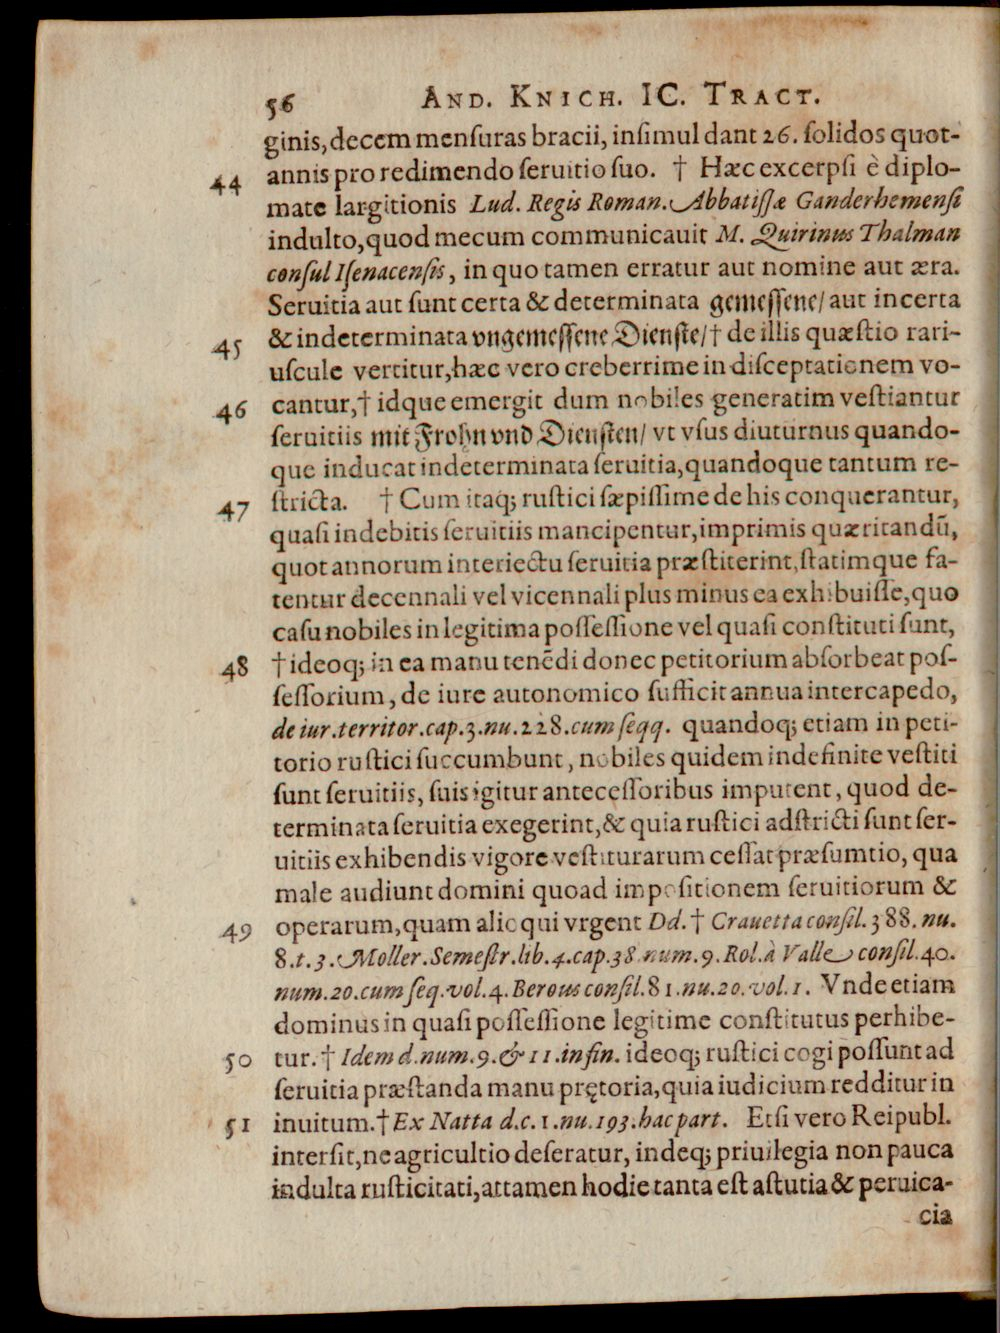 56 AND. KNICH. IC. TRACT.
ginis, decem menſuras bracii, inſimul dant 26. ſolidos quot-
44 annis pro redimendo ſeruitio ſuo. † Hæc excerpſi è diplo-
mate largitionis Lud. Regis Roman. Abbatiſſæ Ganderhemenſi
indulto, quod mecum communicauit M. Quirinus Thalman
conſul Iſenacenſis, in quo tamen erratur aut nomine aut æra.
Seruitia aut ſunt certa & determinata gemeſſene/ aut incerta
45 & indeterminata vngemeſſene Dienſte/ † de illis quæſtio rari-
uſcule vertitur, hæc vero creberrime in diſceptationem vo-
46 cantur, † idque emergit dum nobiles generatim veſtiantur
ſeruitiis mit Frohn vnd Dienſten/ vt vſus diuturnus quando-
que inducat indeterminata ſeruitia, quandoque tantum re-
47 ſtricta. † Cum itaq; ruſtici ſæpiſſime de his conquerantur,
quaſi indebitis ſeruitiis mancipentur, imprimis quæritandū,
quot annorum interiectu ſeruitia præſtiterint, ſtatimque fa-
tentur decennali vel vicennali plus minus ea exhibuiſſe, quo
caſu nobiles in legitima poſſeſſione vel quaſi conſtituti ſunt,
48 † ideoq; in ea manu tenēdi donec petitorium abſorbeat poſ-
ſeſſorium, de iure autonomico ſufficit annua intercapedo,
de iur. territor. cap. 3. nu. 228. cum ſeqq. quandoq; etiam in peti-
torio ruſtici ſuccumbunt, nobiles quidem indefinite veſtiti
ſunt ſeruitiis, ſuis igitur anteceſſoribus imputent, quod de-
terminata ſeruitia exegerint, & quia ruſtici adſtricti ſunt ſer-
uitiis exhibendis vigore veſtiturarum ceſſat præſumtio, qua
male audiunt domini quoad impoſitionem ſeruitiorum &
49 operarum, quam alioqui vrgent Dd. † Crauetta conſil. 388. nu.
8. t. 3. Moller. Semeſtr. lib. 4. cap. 38 num. 9. Rol. à Valle conſil. 40.
num. 20. cum ſeq. vol. 4. Berous conſil. 81. nu. 20. vol. 1. Vnde etiam
dominus in quaſi poſſeſſione legitime conſtitutus perhibe-
50 tur. † Idem d. num. 9. & 11. in fin. ideoq; ruſtici cogi poſſunt ad
ſeruitia præſtanda manu prętoria, quia iudicium redditur in
51 inuitum. † Ex Natta d. c. 1. nu. 193. hac part. Etſi vero Reipubl.
interſit, ne agricultio deſeratur, indeq; priuilegia non pauca
indulta ruſticitati, attamen hodie tanta eſt aſtutia & peruica-
cia